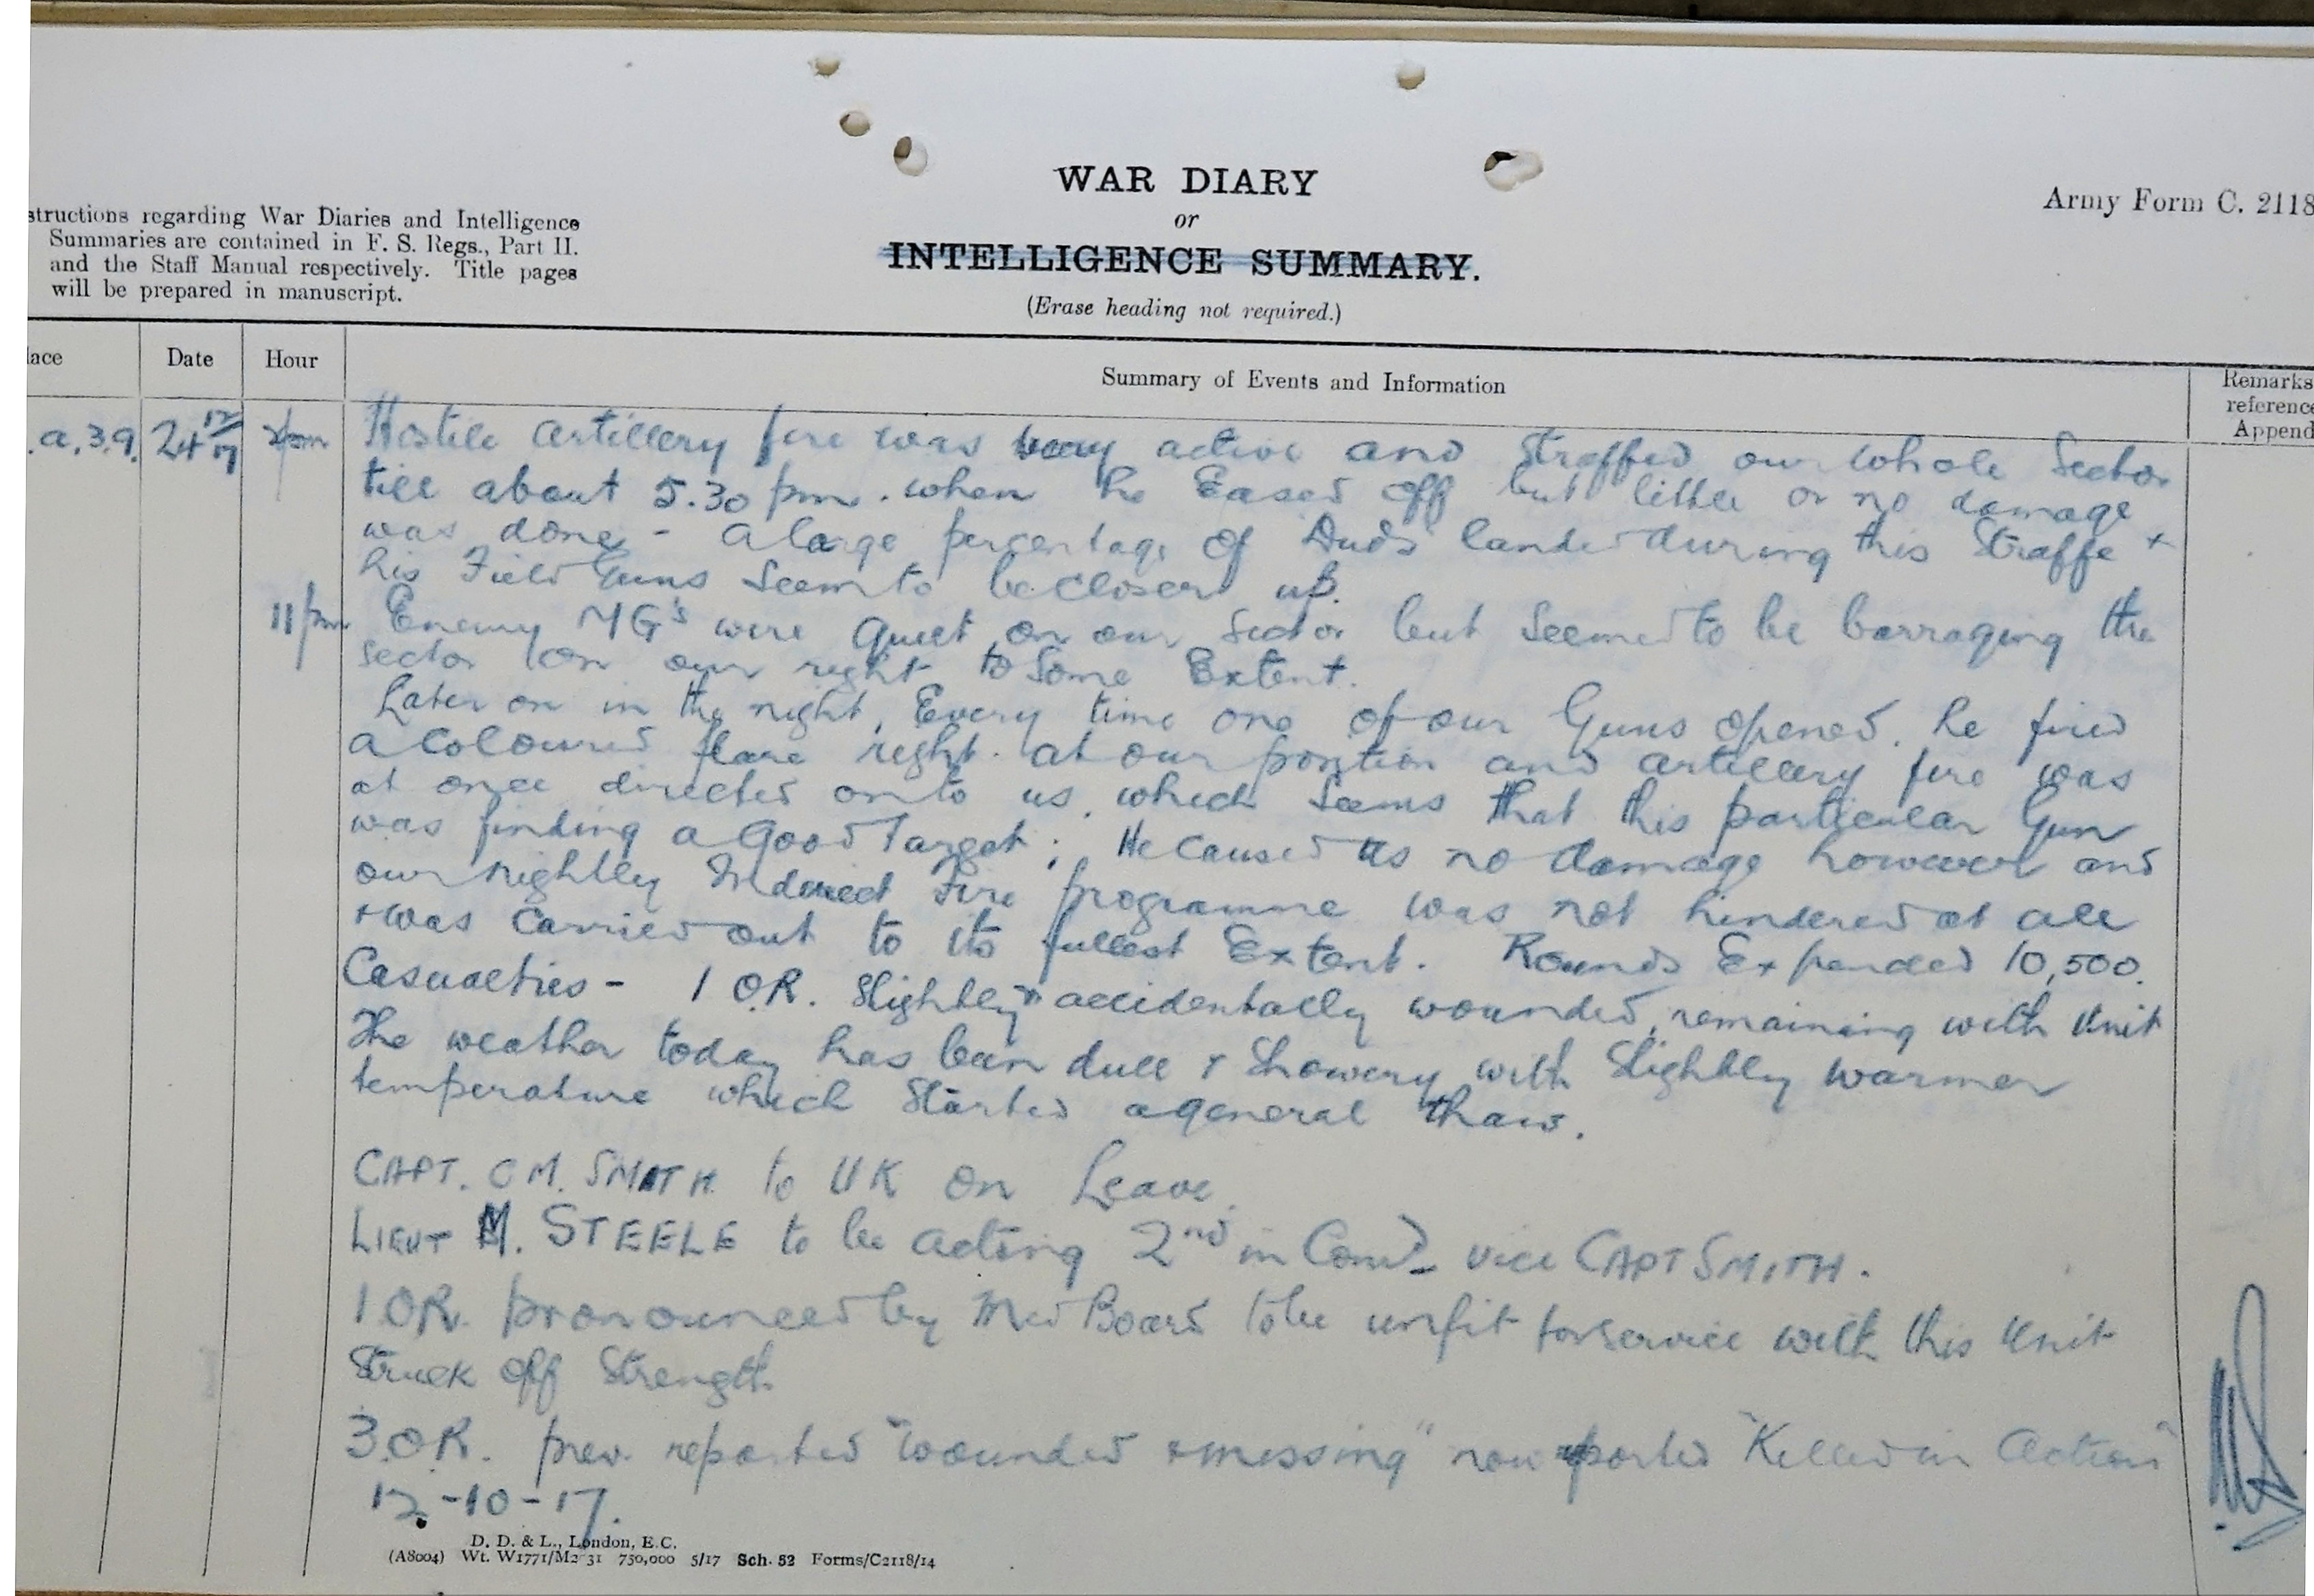 WAR DIARY
or
INTELLIGENCE SUMMARY.
(Erase heading not required.)
Army Form C. 2118
structions regarding War Diaries and Intelligence
Summaries are contained in F. S. Regs., Part II.
and the Staff Manual respectively. Title pages
will be prepared in manuscript.
lace Date Hour Summary of Events and Information Remarks
reference
Append
.a.3.9. 24 12/17 Hostile artillery fire was very active and straffed our whole Sector
till about 5.30 pm. when he Eased off but little or no damage
was done - A large percentage of Duds landed during this Straffe +
his Field Guns seem to be closer up.
11 pm Enemy MG's were quiet on our Sector but seemed to be barraging the
sector on our right to some Extent.
Later on in the night, Every time one of our Guns opened. he fired
a coloured flare right at our position and artillery fire was
at once directed onto us, which seems that this particular Gun
was finding a Good Target; He caused us no damage however and
our nightly Indirect Fire programme was not hindered at all
+ was carried out to its fullest Extent. Rounds Expended 10,500.
Casualties - 1 OR. Slightly accidentally wounded, remaining with Unit
The weather today has been dull + Showery with Slightly warmer
temperature which Started a general thaw.
CAPT. C M. SMITH to UK on Leave.
LIEUT M. STEELE to be acting 2nd in Comd vice CAPT SMITH.
1 OR. pronounced by Med Board to be unfit for service with this Unit
Struck off Strength
3.OR. prev. reported "wounded + missing" now reported "Killed in Action"
12-10-17.
D. D. & L., London, E.C.
(A8004) Wt. W1771/M2 31 750,000 5/17 Sch. 52 Forms/C2118/14